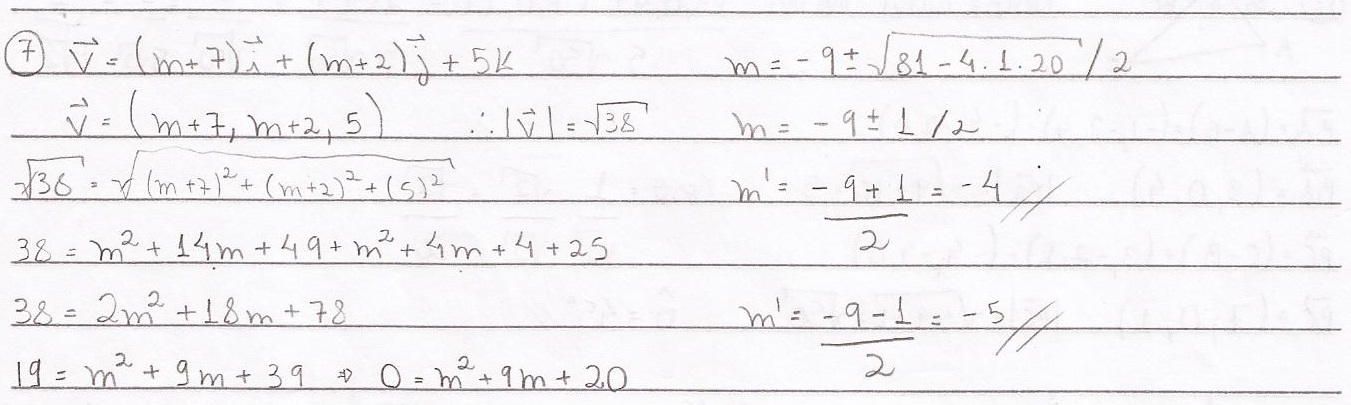 ⑦ v⃗ = (m+7)i⃗ + (m+2)j⃗ + 5k
v⃗ = (m+7, m+2, 5) ∴ |v⃗| = √38
√38 = √(m+7)² + (m+2)² + (5)²
38 = m² + 14m + 49 + m² + 4m + 4 + 25
38 = 2m² + 18m + 78
19 = m² + 9m + 39 ⇒ 0 = m² + 9m + 20
m = -9 ± √81 - 4.1.20 / 2
m = -9 ± 1 / 2
m' = -9 + 1 / 2 = -4 //
m' = -9 - 1 / 2 = -5 //